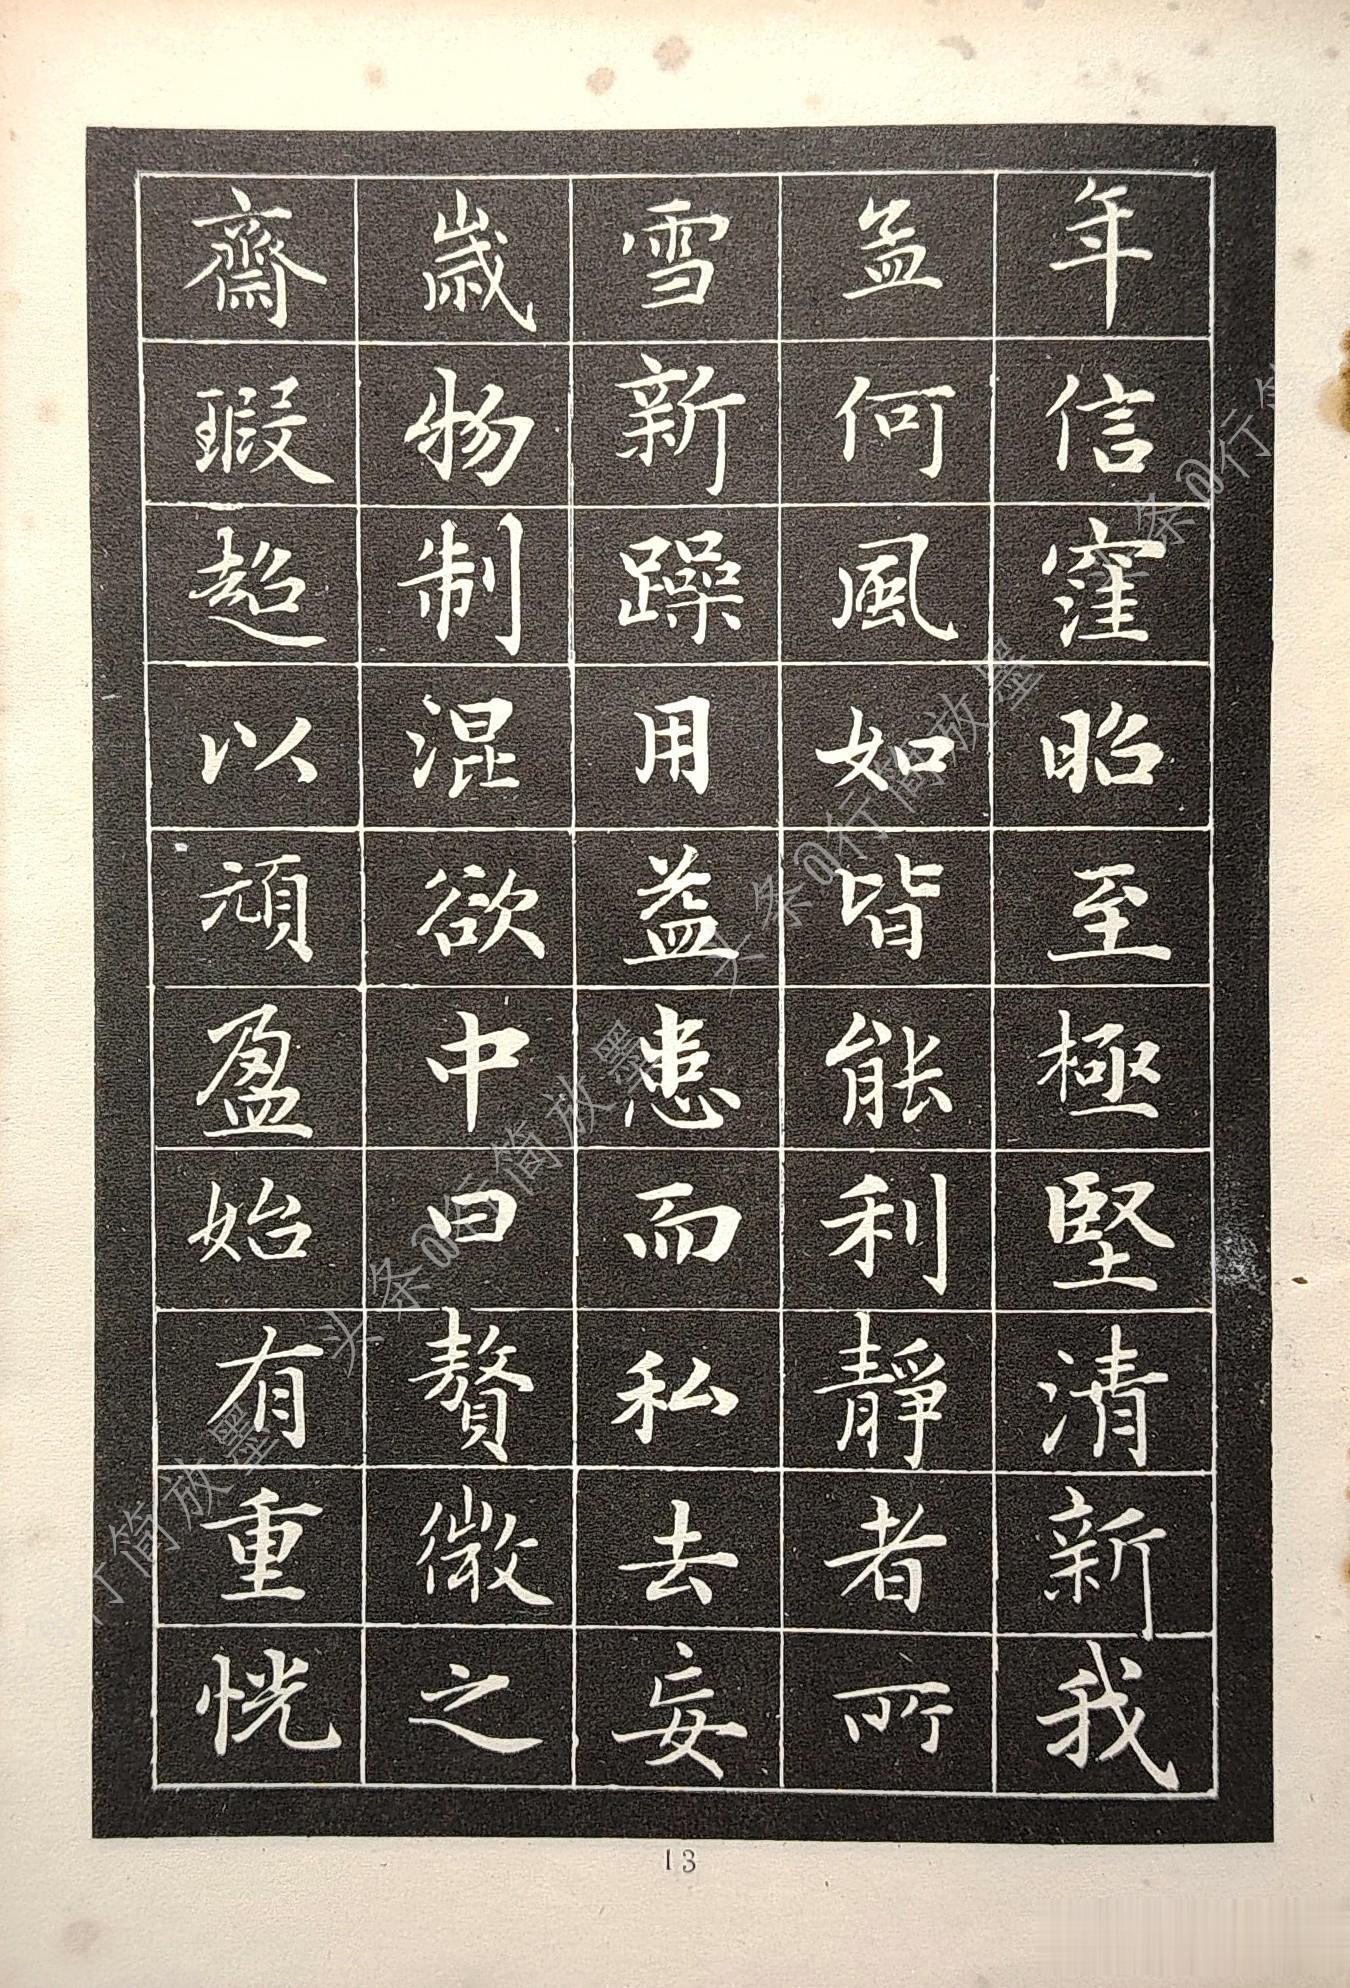 年信窪昭至極堅清新我
孟何風如皆能利靜者所
雪新躁用益患而私去妄
歲物制混欲中曰贅微之
齋瑕超以頑盈始有重恍
13
头条@行简放墨
头条@行简放墨
行简放墨
头条@行简